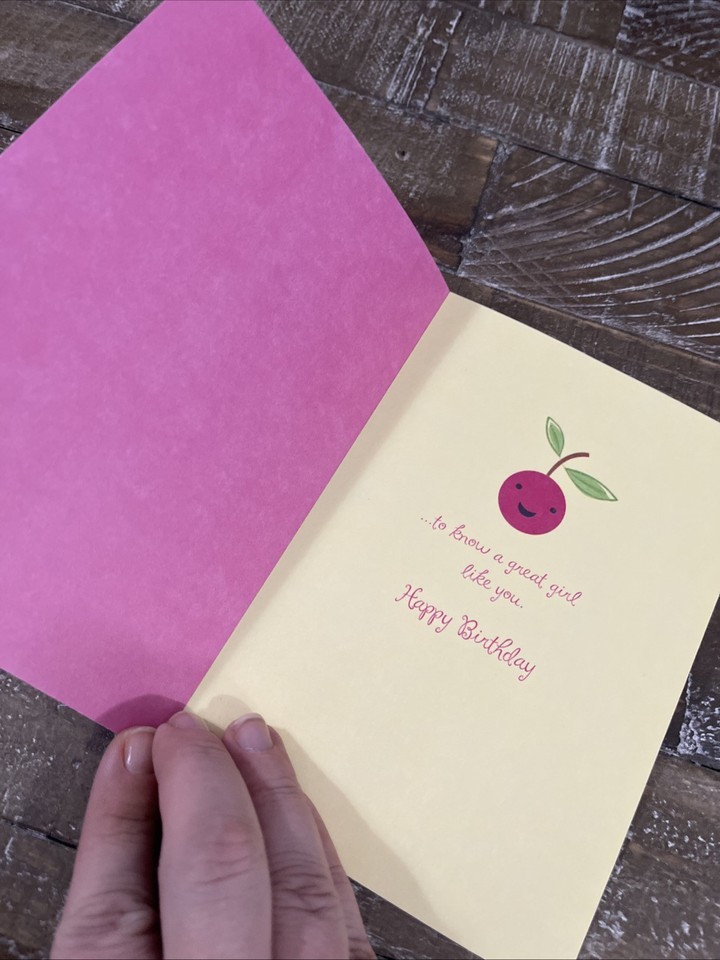 ...to know a great girl
like you.
Happy Birthday